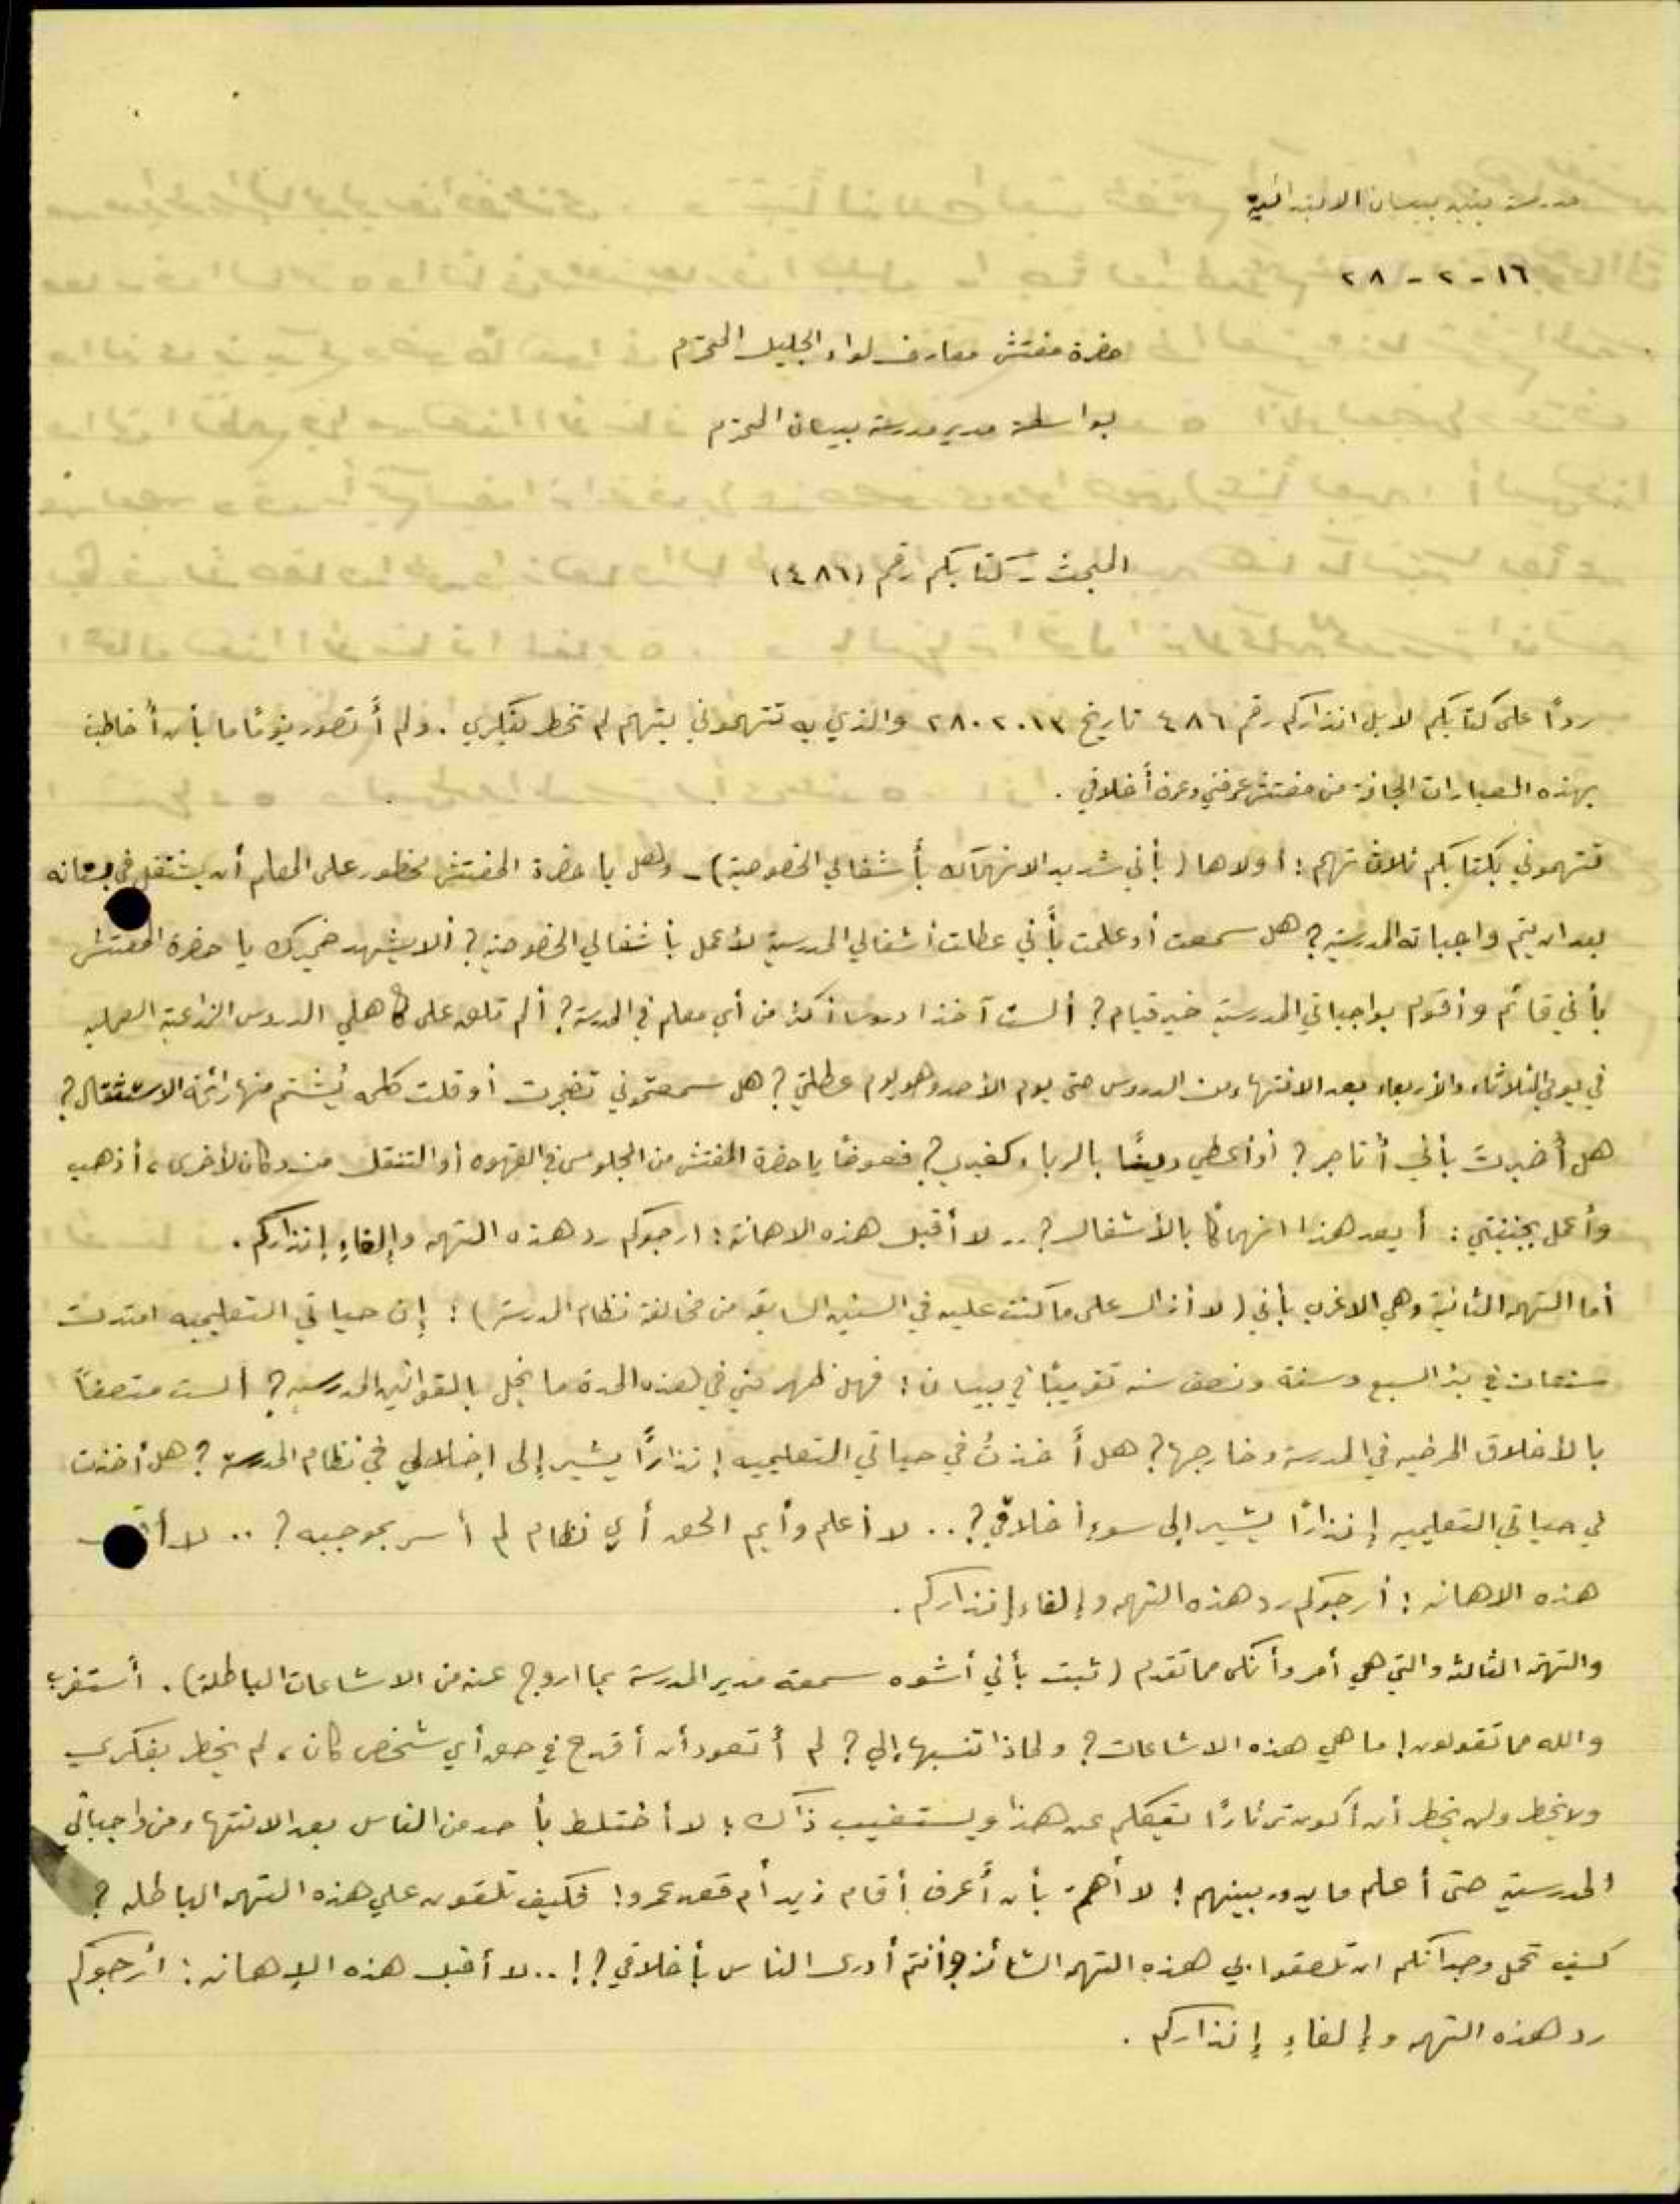 مدرسة بنين بيسان الابتدائية
١٦ - ٢ - ٢٨
حضرة مفتش معارف لواء الجليل المحترم
بواسطة مدير مدرسة بيسان المحترم
المبحث - كتابكم رقم (٤٨٦)
رداً على كتابكم لا بل انذاركم رقم ٤٨٦ تاريخ ١٣.٢.٢٨ والذي به تتهموني بتهم لم تخطر بفكري. ولم أتصور يومًا ما بأن أخاطب
بهذه العبارات الجافة من مفتش عرفني وعرف أخلاقي.
تتهموني بكتابكم ثلاث تهم: أولاها (بأني شديد الانهماك بأشغالي الخصوصية) - وهل يا حضرة المفتش محظور على المعلم أن يشتغل في بستانه
بعد ان يتم واجباته المدرسية؟ هل سمعت أو علمت بأني عطلت أشغالي المدرسية لأعمل بأشغالي الخصوصية؟ ألا يشهد ضميرك يا حضرة المفتش
بأني قائم وأقوم بواجباتي المدرسية خير قيام؟ ألست آخذا دروسا أكثر من أي معلم في المدرسة؟ ألم تلق على كاهلي الدروس الزراعية العملية
في يومي الثلاثاء والأربعاء بعد الانتهاء من الدروس حتى يوم الأحد وهو يوم عطلتي؟ هل سمعتموني تضجرت أو قلت كلمه يُشتم منها رائحة الاستثقال؟
هل أُخبرتَ بأني أتاجر؟ أو أعطي دينًا بالرباء كغيري؟ فعوضًا يا حضرة المفتش من الجلوس في القهوه أو التنقل من دكان لأخرى، أذهب
وأعمل بجنينتي: أيعد هذا انهماكًا بالأشغال؟.. لا أقبل هذه الاهانة: ارجوكم رد هذه التهمه وإلغاءِ إنذاركم.
أما التهمه الثانية وهي الاغرب بأني (لا أزال على ما كنت عليه في السنين السابقه من مخالفة نظام المدرسة): إن حياتي التعليميه امتدت
سنتان في بئر السبع وسنة ونصف سنه تقريبًا في بيسان: فهل ظهر مني في هذه المدة ما يخل بالقوانين المدرسيه؟ ألست متصفاً
بالأخلاق المرضيه في المدرسة وخارجها؟ هل أخذتُ في حياتي التعليميه إنذارًا يشير إلى إخلالي في نظام المدرسة؟ هل أخذت
في حياتي التعليميه إنذارًا يشير إلى سوء أخلاقي؟.. لا أعلم وأيم الحق أي نظام لم أسر بموجبه؟.. لا أقبل
هذه الاهانه: أرجوكم رد هذه التهمه وإلغاء إنذاركم.
والتهمة الثالثه والتي هي أمر وأنكى مما تقدم (ثبت بأني أشوه سمعة مدير المدرسة بما اروج عنه من الاشاعات الباطلة). أستغرب
والله مما تقولون! ما هي هذه الاشاعات؟ ولماذا تنسبها إلي؟ لم أتعود أن أقدح في حق أي شخص كان، لم يخطر بفكري
ولا يخطر ولن يخطر أن أكون ثرثارًا يتكلم عن هذا ويستغيب ذاك؛ لا أختلط بأحد من الناس بعد الانتهاء من واجباتي
المدرسية حتى أعلم ما يدور بينهم! لا أهتم بأن أعرف أقام زيد أم قعد عمرو! فكيف تلقون علي هذه التهمه الباطله؟
كيف تحمل وجدانكم ان تلصقوا بي هذه التهمه الشائنة وأنتم أدرى الناس بأخلاقي؟!.. لا أقبل هذه الإهانه: أرجوكم
رد هذه التهمه وإلغاءِ إنذاركم.